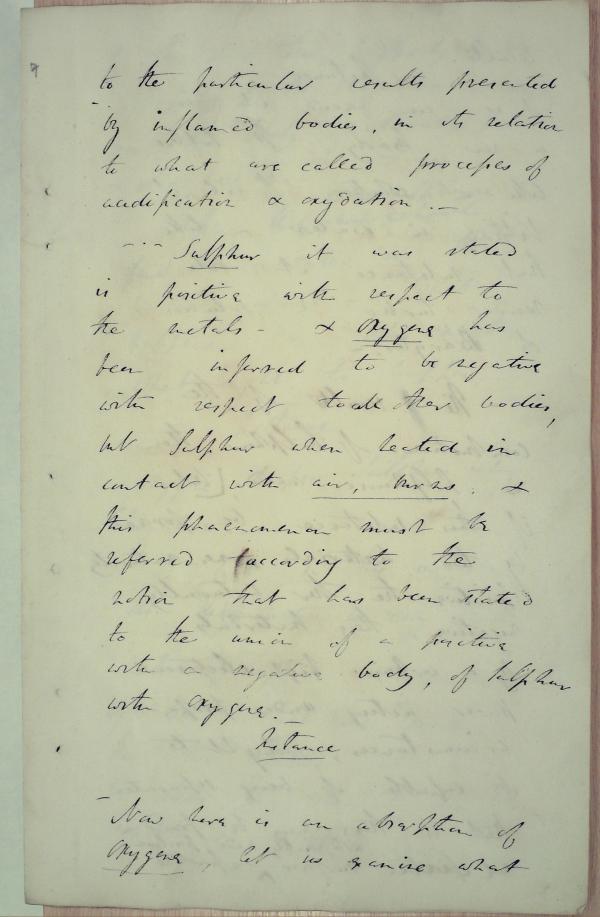 7
to the particular results presented
by inflamed bodies, in its relation
to what are called processes of
acidification & oxydation. —
--- Sulphur it was stated
is positive with respect to
the metals - & Oxygene has
been inferred to be negative
with respect to all other bodies,
but Sulphur when heated in
contact with air, burns. &
this phaenomenon must be
referred (according to the
notion that has been stated
to the union of a positive
with a negative body, of Sulphur
with oxygene. —
Instance
- Now here is an absorption of
Oxygene, let us examine what